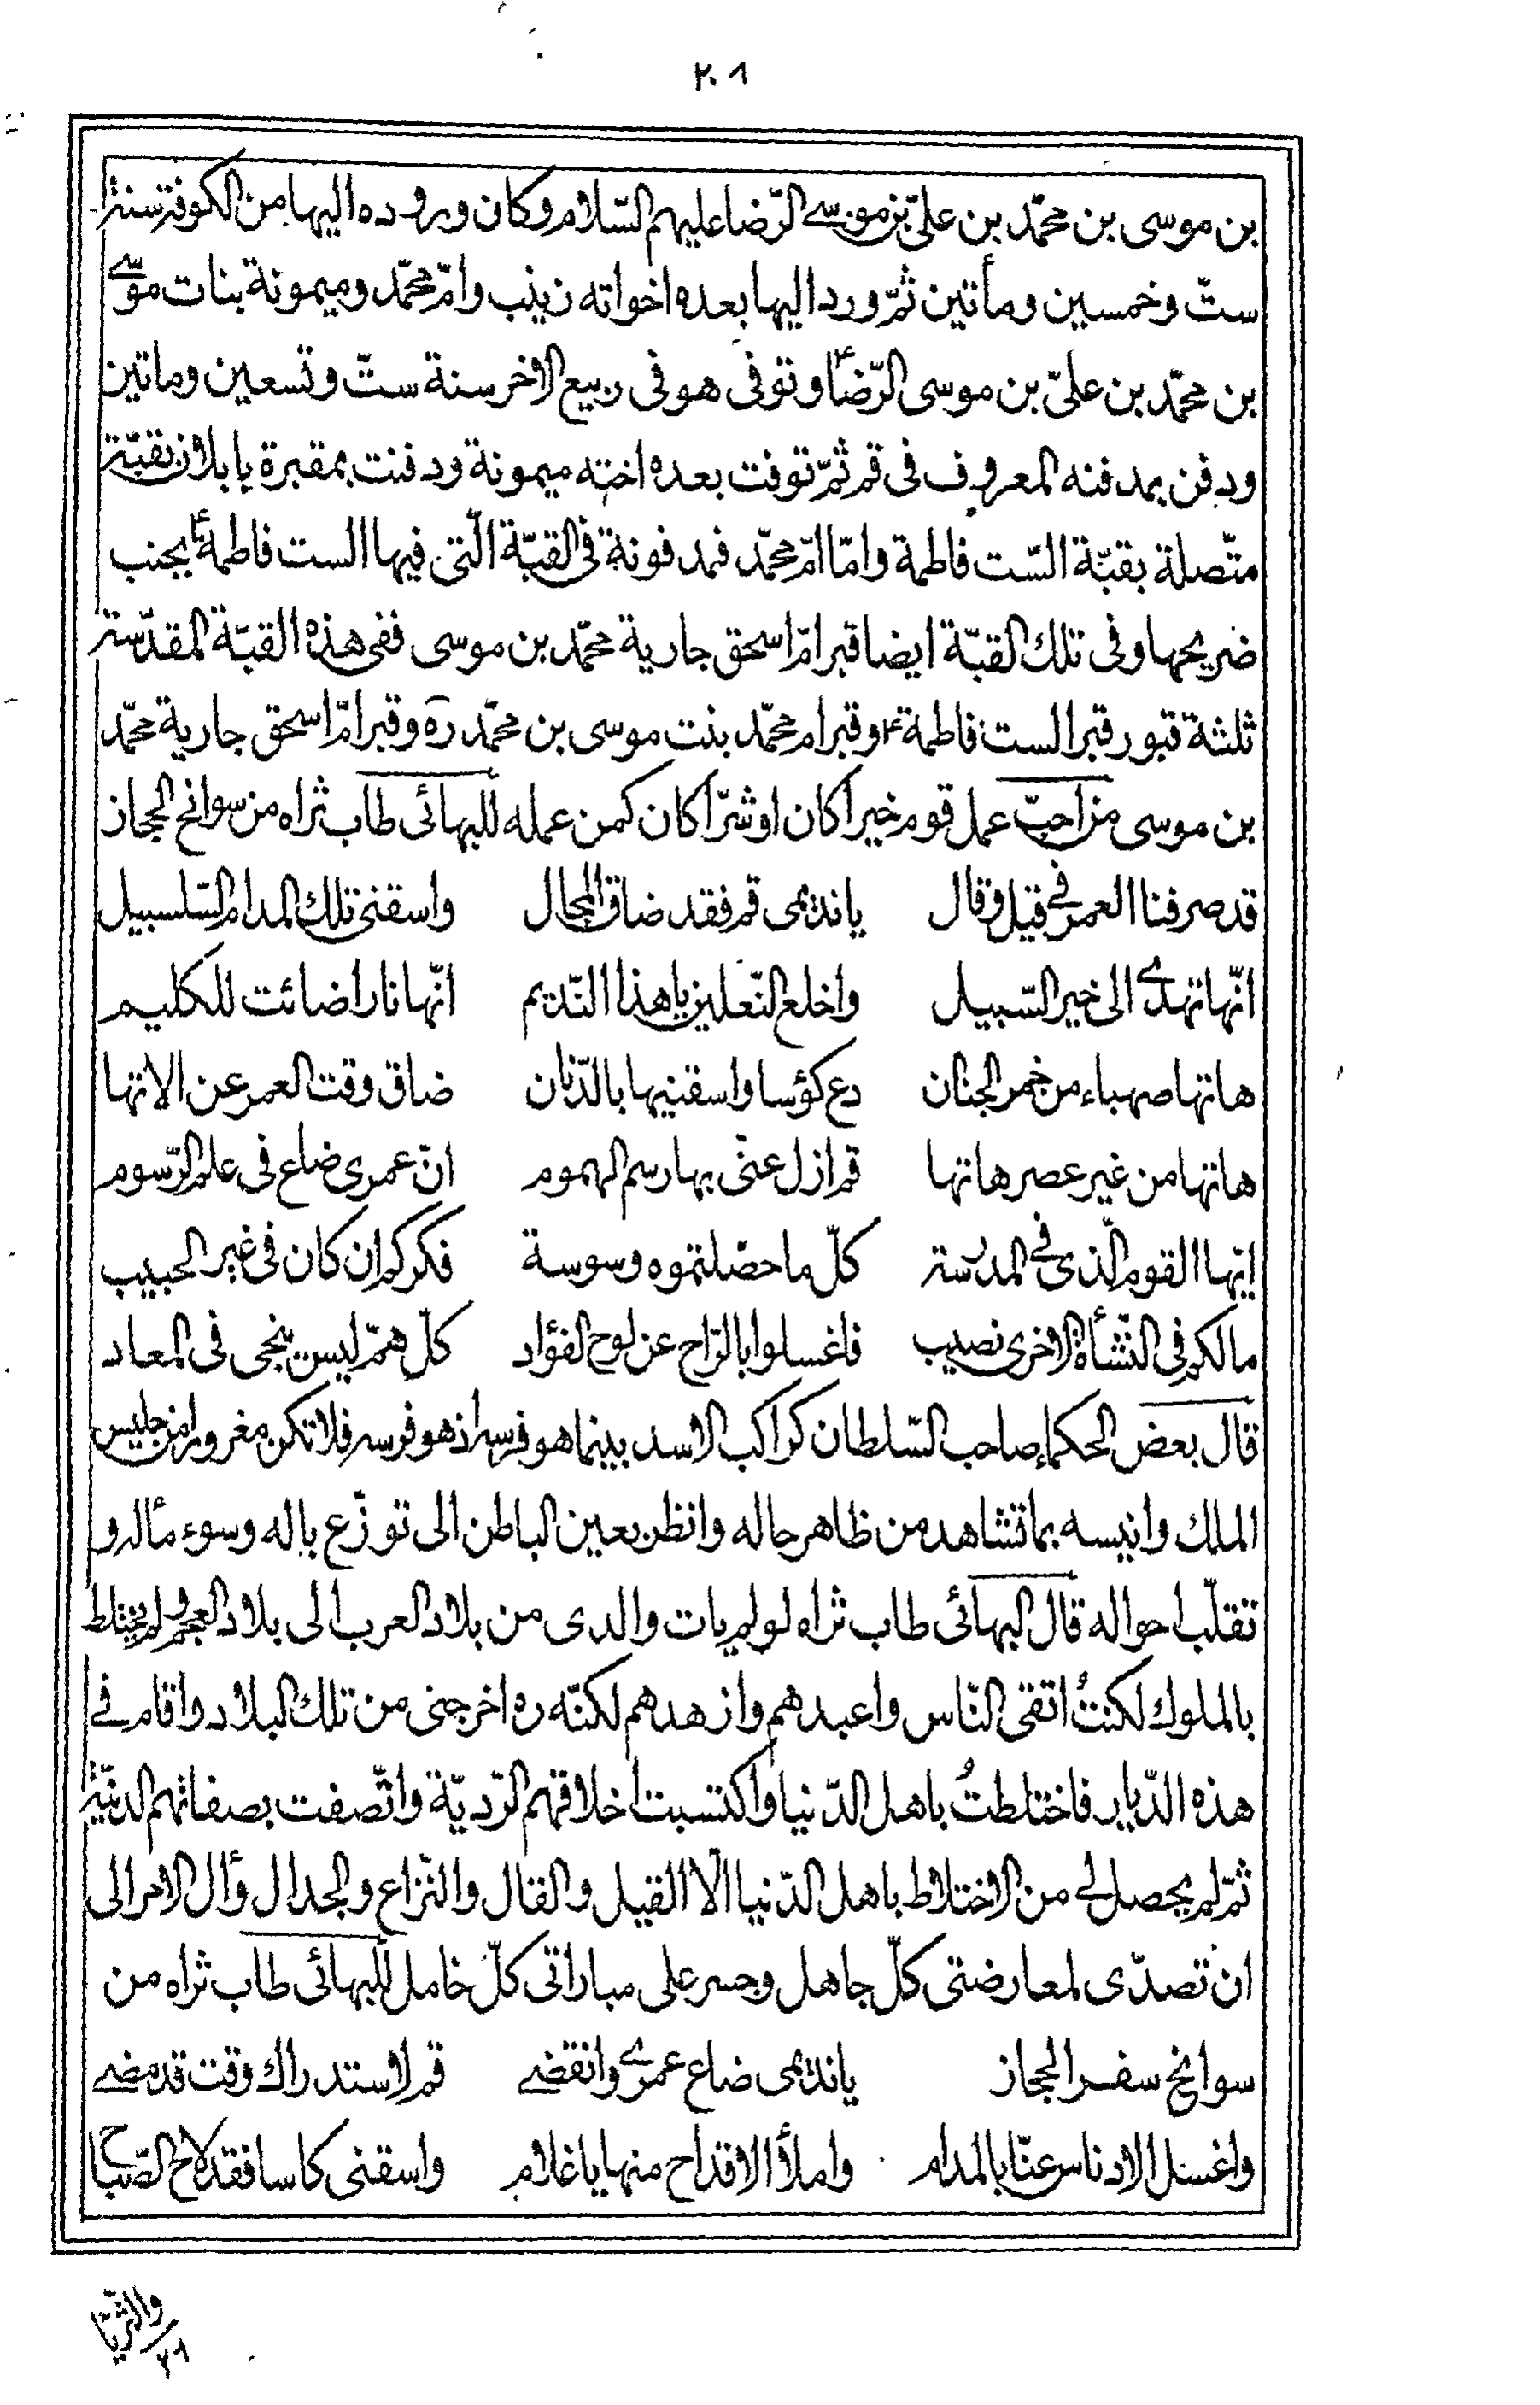 ٢٠٨
بن موسى بن محمّد بن علىّ بن موسى الرّضا عليهم السّلام وكان وروده اليها من الكوفة سنة
ستّ وخمسين ومأتين ثمّ ورد اليها بعده اخواته زينب وامّ محمّد وميمونة بنات موسى
بن محمّد بن علىّ بن موسى الرّضاء وتوفى هو فى ربيع الاخر سنة ستّ وتسعين وماتين
ودفن بمدفنه المعروف فى قم ثمّ توفت بعده اخته ميمونة ودفنت بمقبرة بابلان بقبّة
متّصلة بقبّة السّت فاطمة وامّا امّ محمّد فمدفونة فى القبّة الّتى فيها الست فاطمة ع بجنب
ضريحها وفى تلك القبّة ايضا قبر امّ اسحق جارية محمّد بن موسى ففى هذه القبّة المقدّسة
ثلثة قبور قبر الست فاطمة ع وقبر ام محمّد بنت موسى بن محمّد ره وقبر امّ اسحق جارية محمّد
بن موسى من احبّ عمل قوم خيرا كان او شرّا كان كمن عمله للبهائى طاب ثراه من سوانح الحجاز
قد صرفنا العمر فى قيل وقال يا نديمى قم فقد ضاق المجال واسقنى تلك المدام السّلسبيل
انّها تهدى الى خير السّبيل واخلع النّعلين يا هذا النّديم انّها نار اضائت للكليم
هاتها صهباء من خمر الجنان دع كؤسا واسقنيها بالدّنان ضاق وقت العمر عن الاتها
هاتها من غير عصر هاتها قم ازل عنّى بها رسم الهموم انّ عمرى ضاع فى علم الرّسوم
ايّها القوم الّذى فى المدرسة كلّ ما حصّلتموه وسوسة فكركم ان كان فى غير الحبيب
ما لكم فى النّشأة الاخرى نصيب فاغسلوا بالرّاح عن لوح الفؤاد كلّ همّ ليس ينجى فى المعاد
قال بعض الحكماء صاحب السّلطان كراكب الاسد بينما هو فرسه اذ هو فرسه فلا تكن مغرورا من جليس
الملك وانيسه بما تشاهد من ظاهر حاله وانظر بعين الباطن الى توزّع باله وسوء مأله و
تقلّب احواله قال البهائى طاب ثراه لو لم يات والدى من بلاد العرب الى بلاد العجم ولم يختلط
بالملوك لكنتُ اتقى النّاس واعبدهم وازهدهم لكنّه ره اخرجنى من تلك البلاد واقام فى
هذه الدّيار فاختلطتُ باهل الدّنيا واكتسبت اخلاقهم الرّديّة واتّصفت بصفاتهم الدنيّة
ثمّ لم يحصل لى من الاختلاط باهل الدّنيا الّا القيل والقال والنّزاع والجدال وأل الامر الى
ان تصدّى لمعارضتى كلّ جاهل وجسر على مباراتى كلّ خامل للبهائى طاب ثراه من
سوانح سفر الحجاز يا نديمى ضاع عمرى وانقضى قم لاستدراك وقت قد مضى
واغسل الادناس عنّا بالمدام واملأ الاقداح منها يا غلام واسقنى كاسا فقد لاح الصّباح
والثّريّا